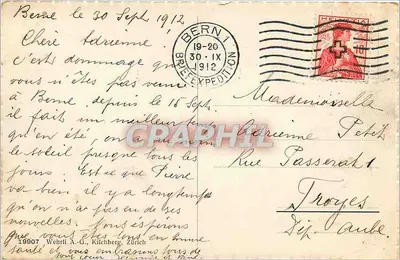 Berne le 30 Sept 1912
Chère Adrienne
c'est dommage que
vous n'êtes pas venu
à Berne, depuis le 16 Sept.
il fait un meilleur temps
qu'en été, on a
le soleil presque tous les
jours. Est ce que Pierre
va bien il y a longtemps
qu'on n'a pas eu de ses
nouvelles. Nous espérons
que vous êtes tous en bonne
santé et vous embrassons tous de
tout coeur
19907 Wehrli A.-G., Kilchberg, Zürich
BERN 1
19-20
30·IX
1912
BRIEFEXPEDITION
HELVETIA
10
CPAPHIL
Mademoiselle
Adrienne Petit
Rue Passerat 1
Troyes
Dép. Aube.